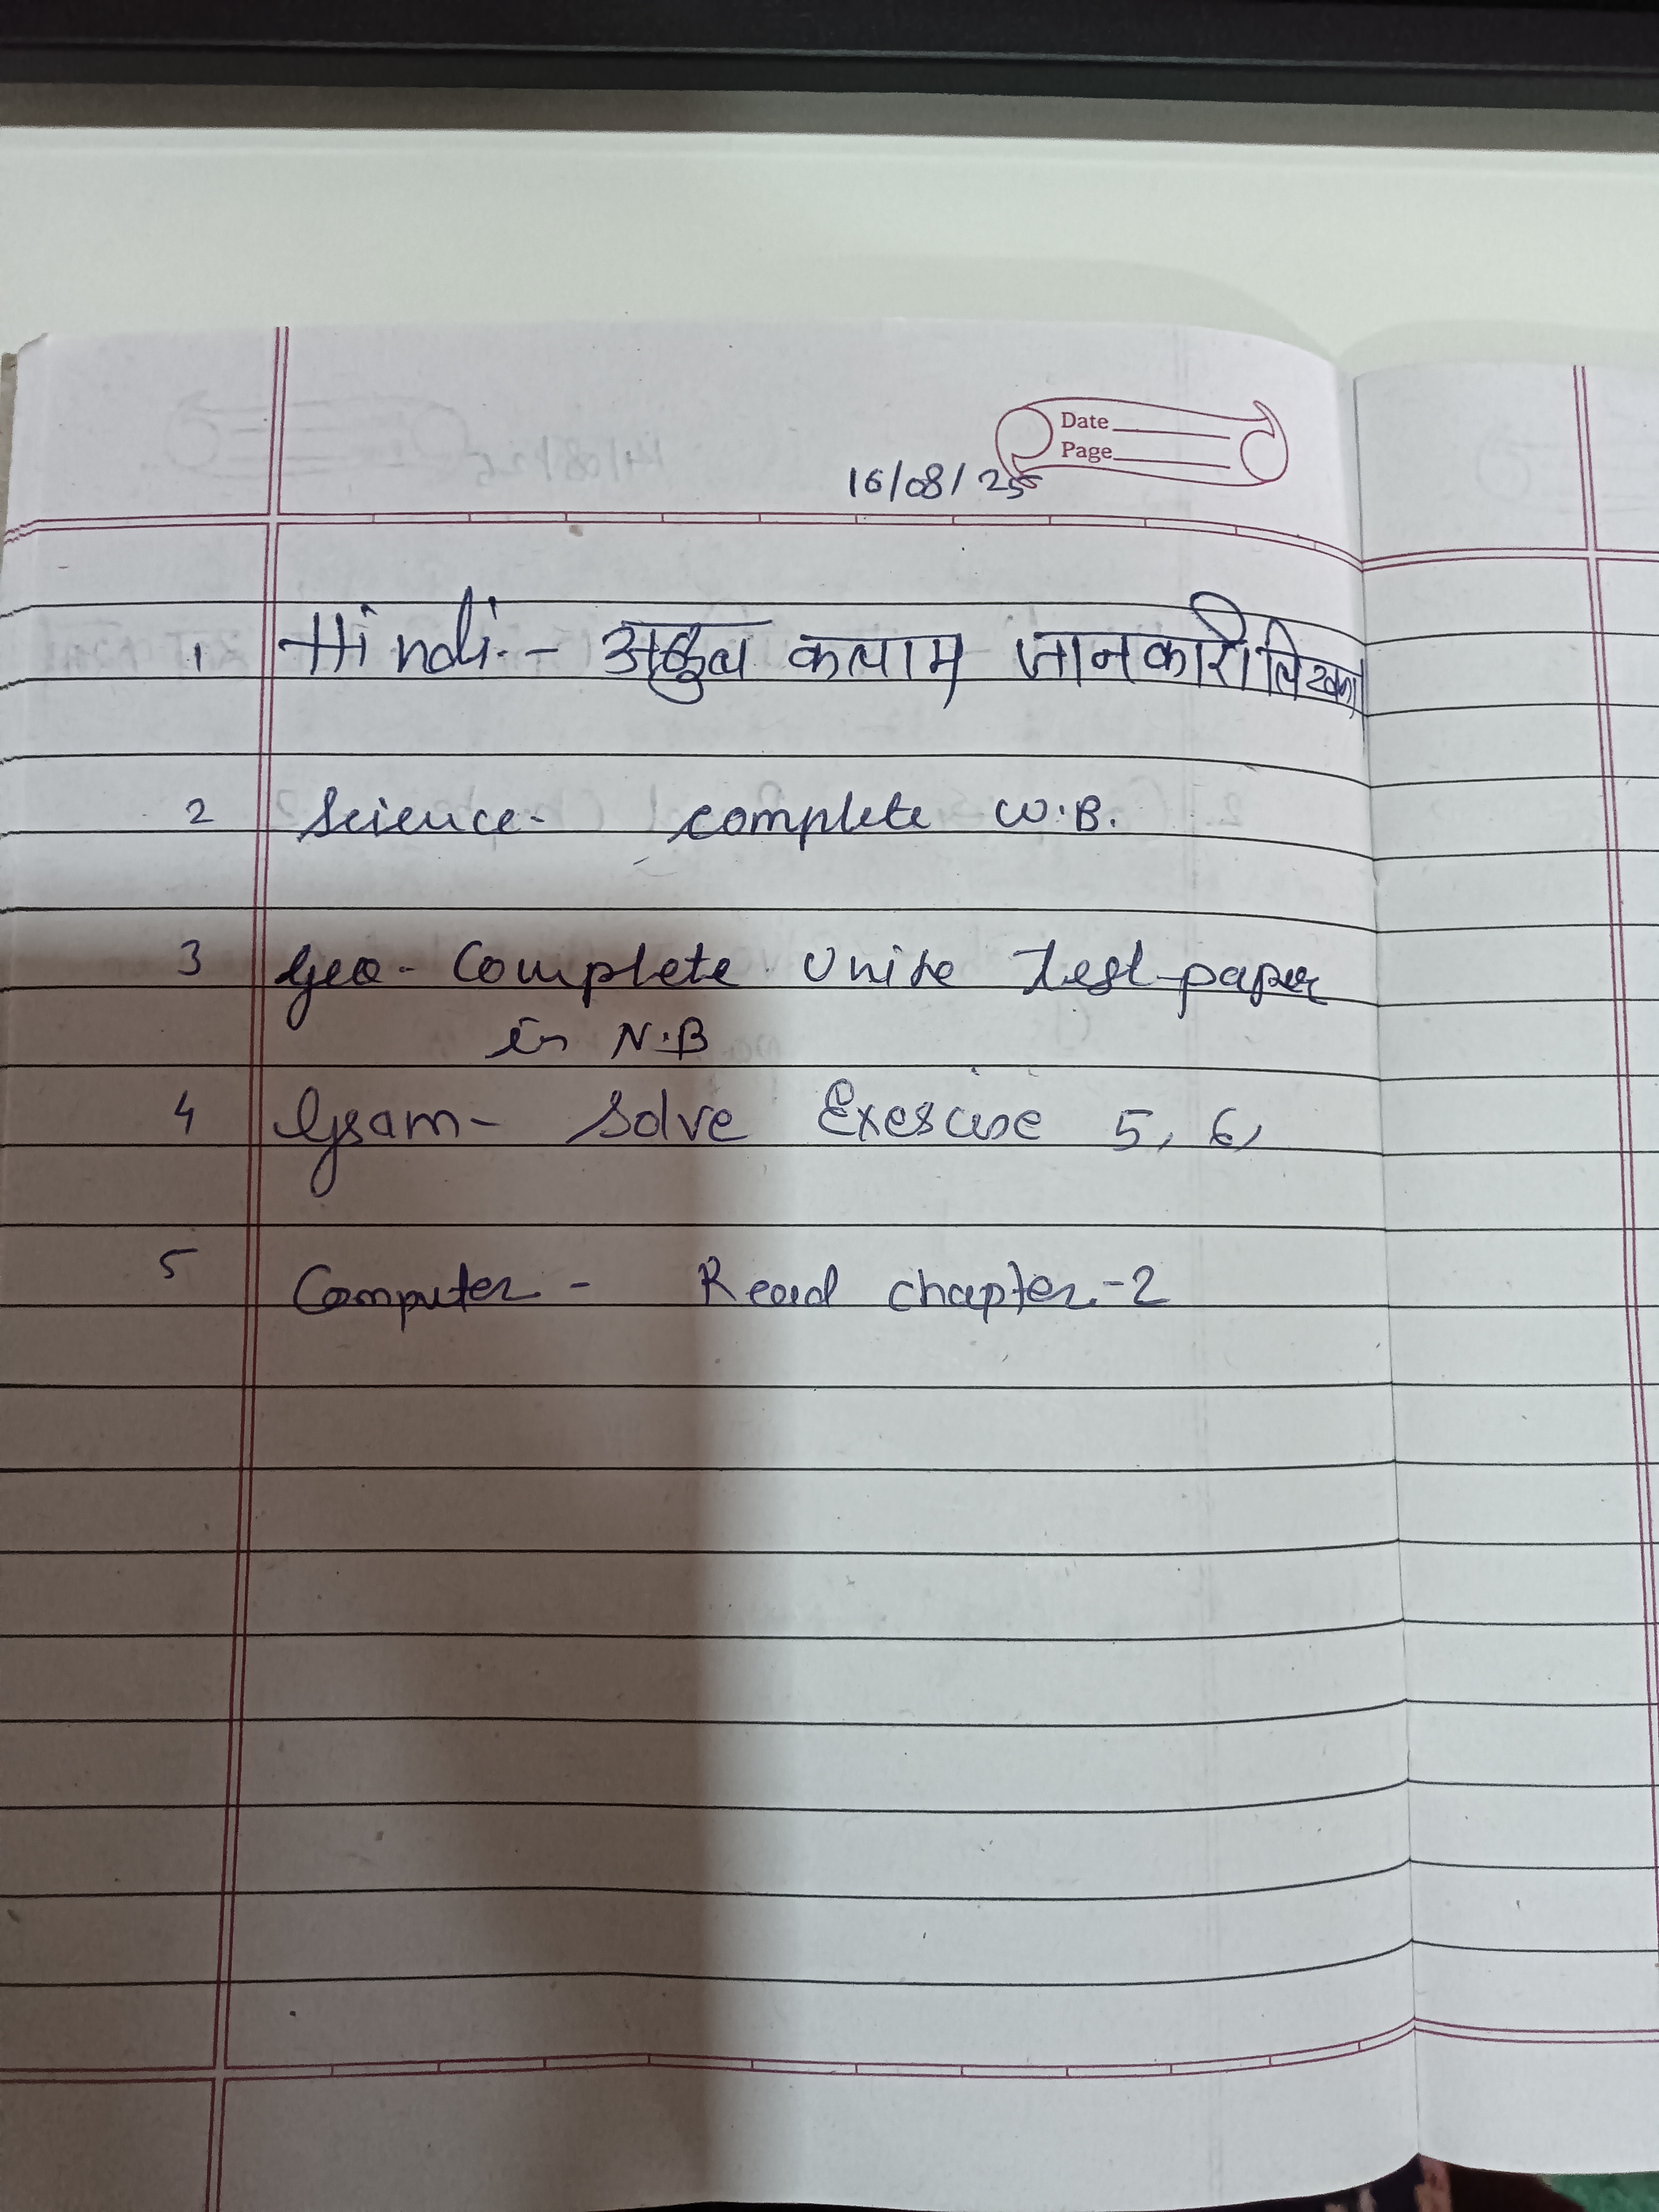 Date
Page
16/08/25
1 Hindi - अब्दुल कलाम जानकारी लिखना
2 Science - complete W.B.
3 Geo - Complete Unite test paper
in N.B
4 Gram - Solve Exercise 5, 6,
5 Computer - Read chapter-2